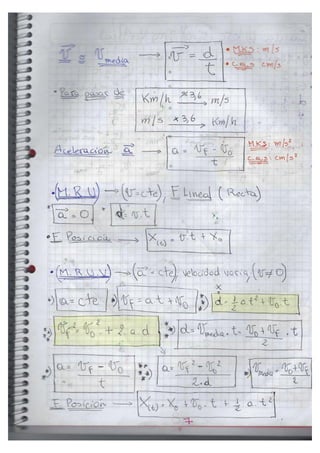 V⃗ s V media → V⃗ = d/t • M.K.S: m/s
• C.G.S: cm/s
• Para pasar de
Km/h ×3,6 → m/s
m/s ×3,6 → Km/h
Aceleración a⃗ → a = (Vf - Vo)/t M.K.S: m/s²
C.G.S: cm/s²
• (M.R.U) → (V=cte), E Lineal (Recta)
* a⃗ = 0 * d = v.t
• E Posición → X(t) = v.t + Xo
• (M.R.U.V) → (a⃗ = cte), velocidad varía, (V≠0)
a = cte Vf = a t + Vo d = 1/2 a t² + Vo t
Vf² = Vo² + 2 a d d = Vmedia . t = (Vo + Vf)/2 . t
a = (Vf - Vo)/t a = (Vf² - Vo²)/2.d Vmedia = (Vo + Vf)/2
E Posición → X(t) = Xo + Vo . t + 1/2 a t²
7